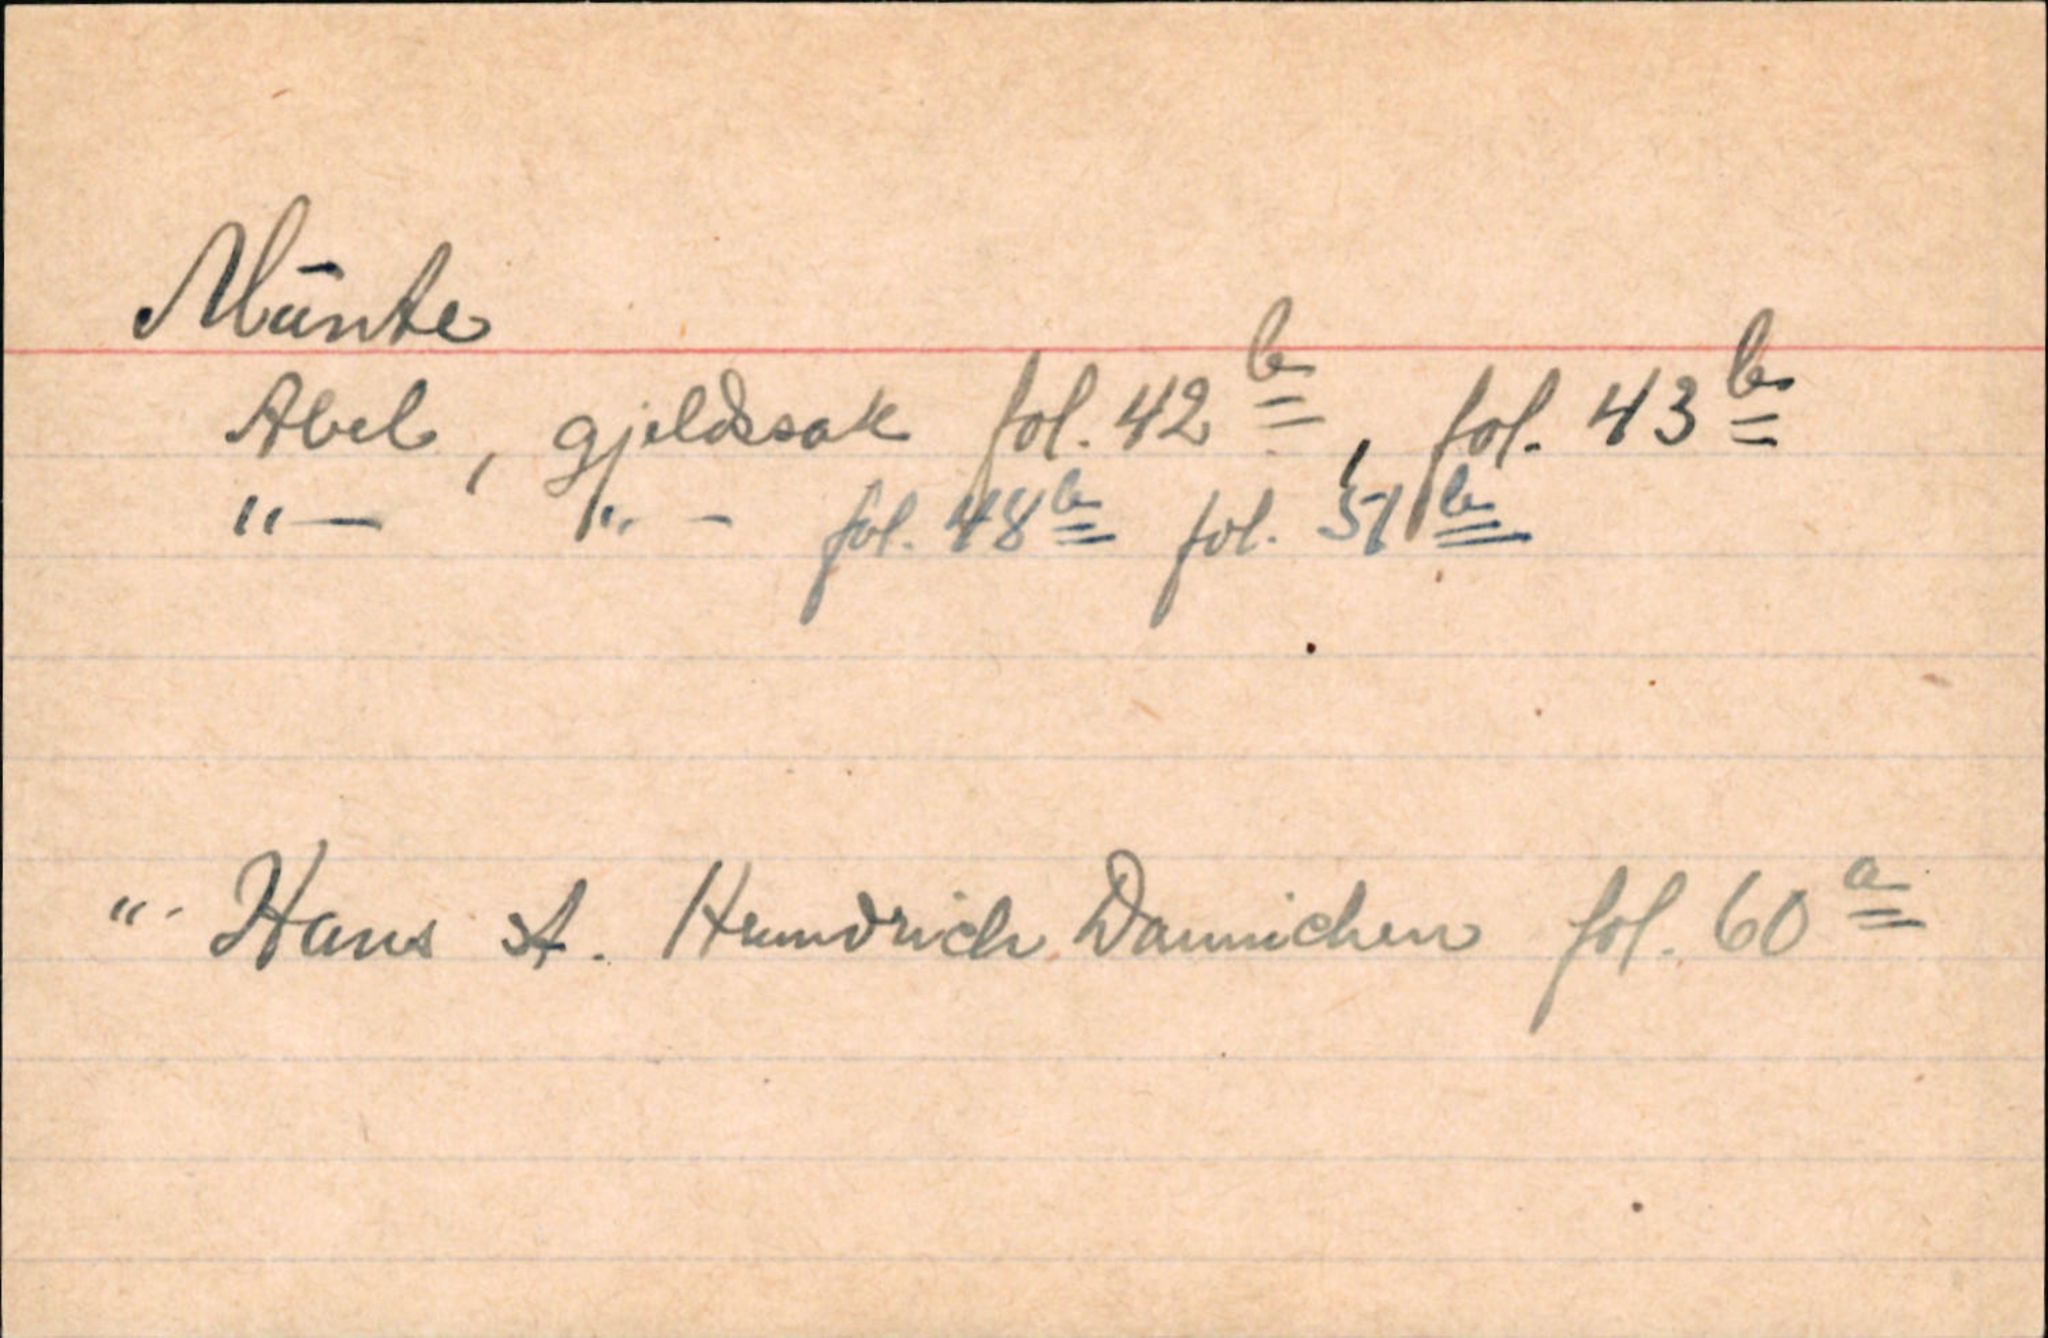 Münte
Abel, gjeldssak fol. 42 b, fol. 43 b
"— "— fol. 48 b fol. 51 b
"- Hans st. Hendrich Dannichen fol. 60 a